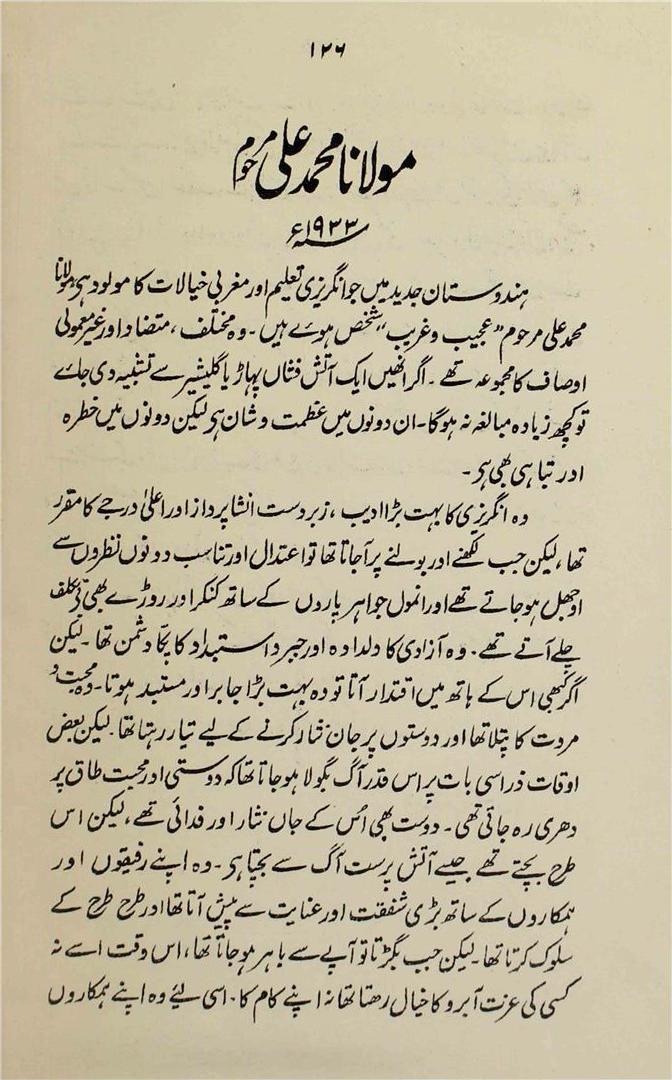 ۱۲۶
مولانا محمد علی مرحوم
سنہ ۱۹۳۳ء
ہندوستان جدید میں جو انگریزی تعلیم اور مغربی خیالات کا مولود ہی مولانا
محمد علی مرحوم ”عجیب و غریب“ شخص ہوے ہیں ۔ وہ مختلف ، متضاد اور غیر معمولی
اوصاف کا مجموعہ تھے ۔ اگر انھیں ایک آتش فشاں پہاڑ یا گلیشیر سے تشبیہ دی جاے
تو کچھ زیادہ مبالغہ نہ ہوگا ۔ ان دونوں میں عظمت و شان ہی لیکن دونوں میں خطرہ
اور تباہی بھی ہی ۔
وہ انگریزی کا بہت بڑا ادیب ، زبردست انشا پرداز اور اعلیٰ درجے کا مقرر
تھا ، لیکن جب لکھنے اور بولنے پر آجاتا تھا تو اعتدال اور تناسب دونوں نظروں سے
اوجھل ہو جاتے تھے اور انمول جواہر پاروں کے ساتھ کنکر اور روڑے بھی بے تکلف
چلے آتے تھے ۔ وہ آزادی کا دلدادہ اور جبر و استبداد کا پکّا دشمن تھا ۔ لیکن
اگر کبھی اس کے ہاتھ میں اقتدار آتا تو وہ بہت بڑا جابر اور مستبد ہوتا ۔ وہ محبت و
مروت کا پتلا تھا اور دوستوں پر جان نثار کرنے کے لیے تیار رہتا تھا ۔ لیکن بعض
اوقات ذرا سی بات پر اس قدر آگ بگولا ہو جاتا تھا کہ دوستی اور محبت طاق پر
دھری رہ جاتی تھی ۔ دوست بھی اُس کے جاں نثار اور فدائی تھے ، لیکن اس
طرح بچتے تھے جیسے آتش پرست آگ سے بچتا ہی ۔ وہ اپنے رفیقوں اور
ہمکاروں کے ساتھ بڑی شفقت اور عنایت سے پیش آتا تھا اور طرح طرح کے
سلوک کرتا تھا ۔ لیکن جب بگڑتا تو آپے سے باہر ہو جاتا تھا ، اس وقت اسے نہ
کسی کی عزت آبرو کا خیال رھتا تھا نہ اپنے کام کا ۔ اسی لیئے وہ اپنے ہمکاروں